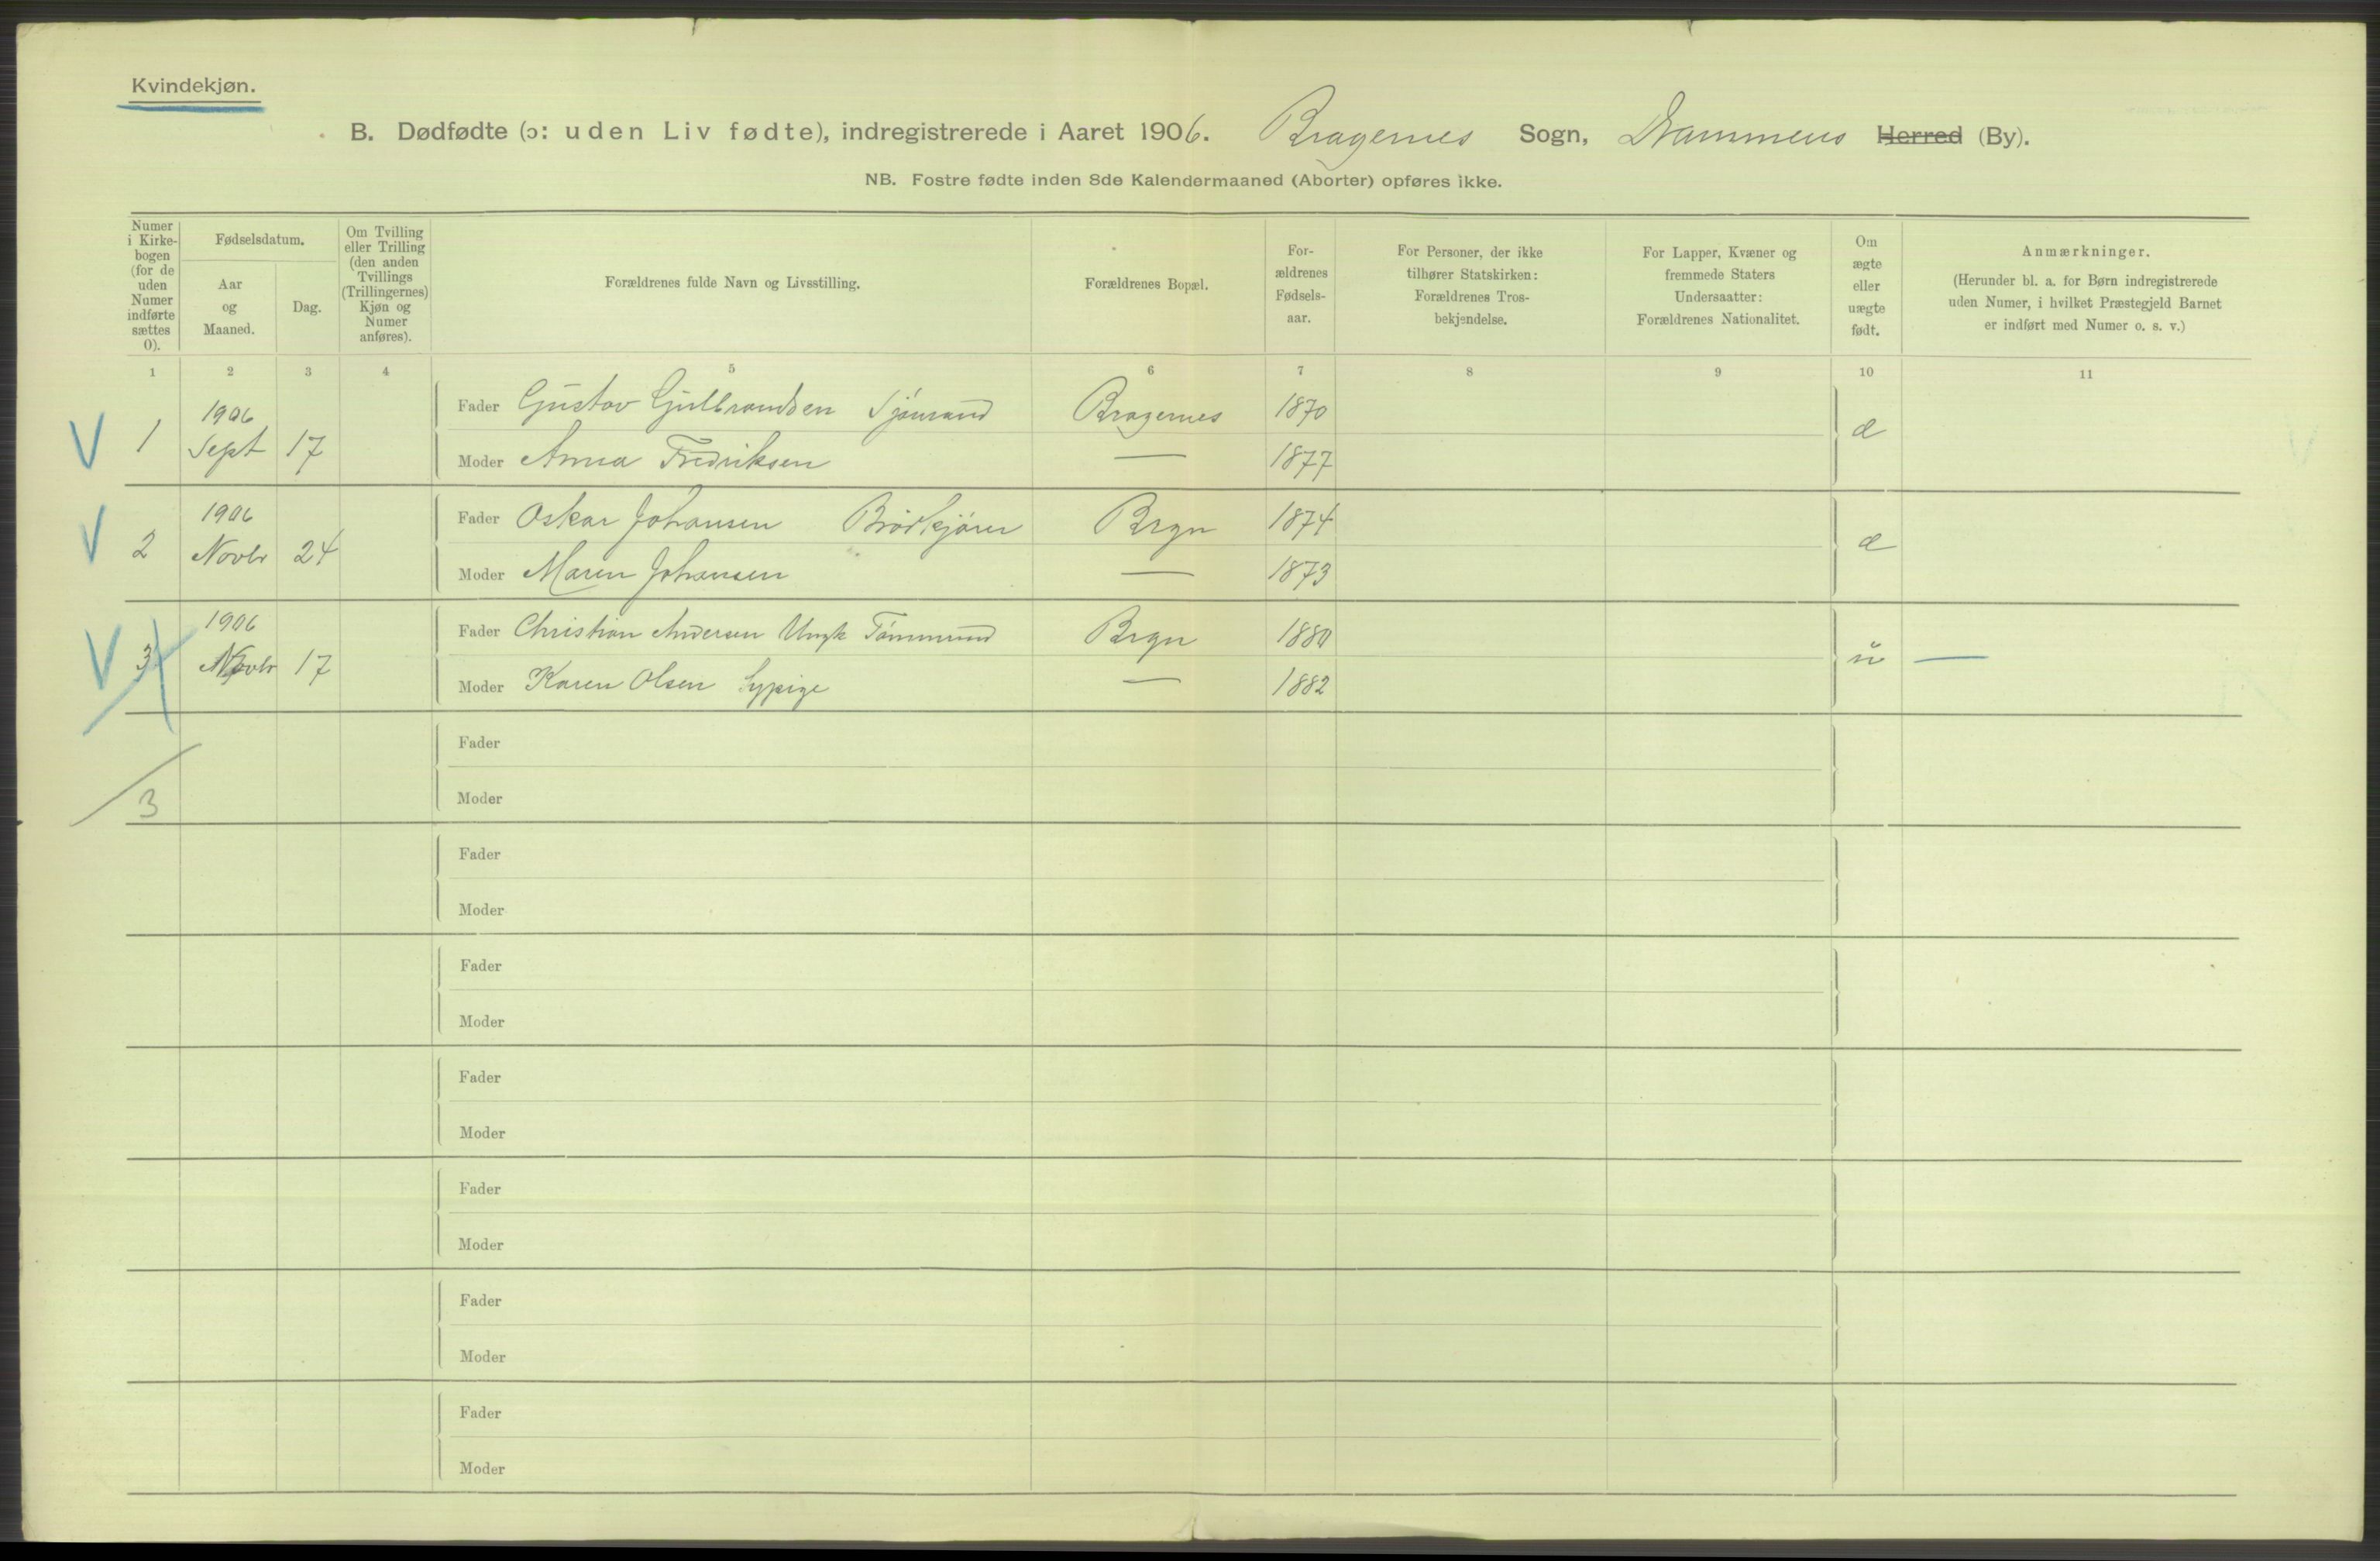 Kvindekjøn.
B. Dødfødte (ɔ: uden Liv fødte), indregistrerede i Aaret 1906. Bragernes Sogn, Drammens Herred (By).
NB. Fostre fødte inden 8de Kalendermaaned (Aborter) opføres ikke.
Numer i Kirkebogen (for de uden Numer indførte sættes 0).
Fødselsdatum.
Aar og Maaned.
Dag.
Om Tvilling eller Trilling (den anden Tvillings (Trillingernes) Kjøn og Numer anføres).
Forældrenes fulde Navn og Livsstilling.
Forældrenes Bopæl.
Forældrenes Fødselsaar.
For Personer, der ikke tilhører Statskirken: Forældrenes Trosbekjendelse.
For Lapper, Kvæner og fremmede Staters Undersaatter: Forældrenes Nationalitet.
Om ægte eller uægte født.
Anmærkninger.
(Herunder bl. a. for Børn indregistrerede uden Numer, i hvilket Præstegjeld Barnet er indført med Numer o. s. v.)
1 2 3 4 5 6 7 8 9 10 11
V 1 1906 Sept 17 Fader Gustav Gulbrandsen Sjømand Bragernes 1870 æ
Moder Anna Fredriksen — 1877
V 2 1906 Novbr 24 Fader Oskar Johansen Brødkjører Brgn 1874 æ
Moder Maren Johansen — 1873
V 3 1906 Novbr 17 Fader Christian Andersen Ungk Tømmermd Brgn 1880 u —
Moder Karen Olsen Sypige — 1882
Fader
Moder
3
Fader
Moder
Fader
Moder
Fader
Moder
Fader
Moder
Fader
Moder
Fader
Moder